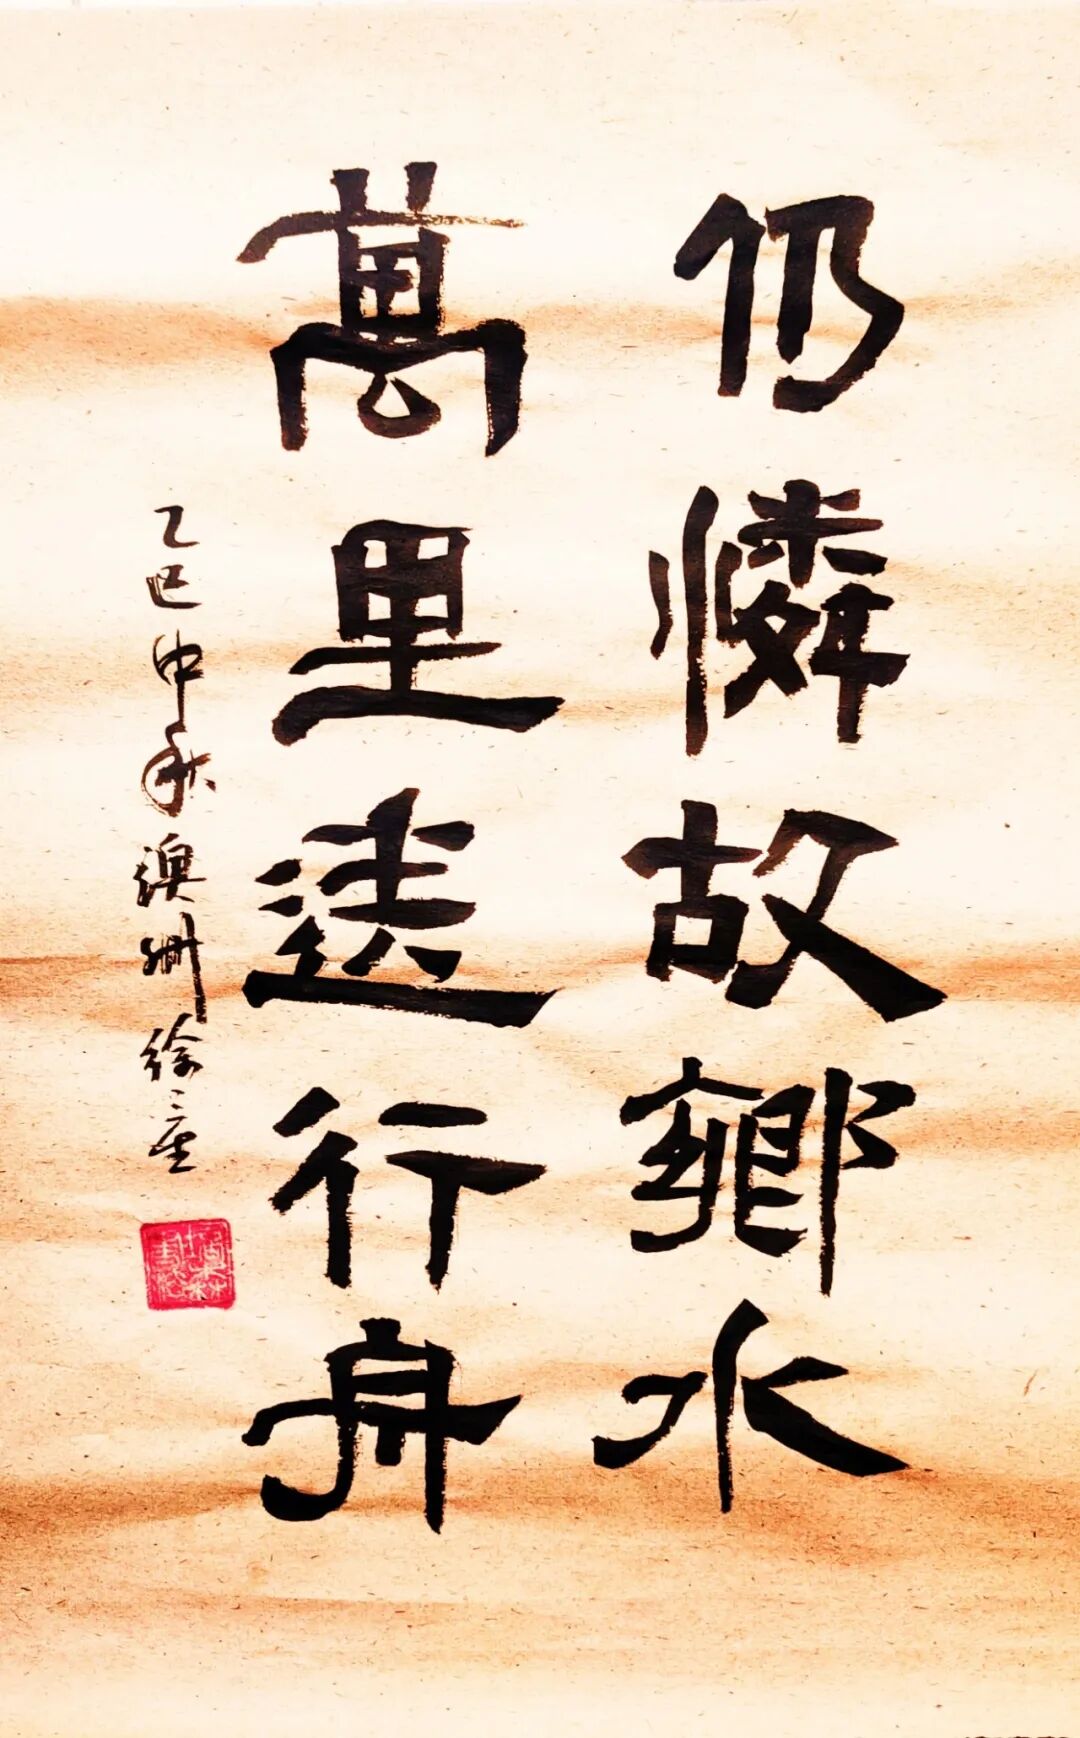 仍憐故鄉水
萬里送行舟
乙巳中秋澳洲徐